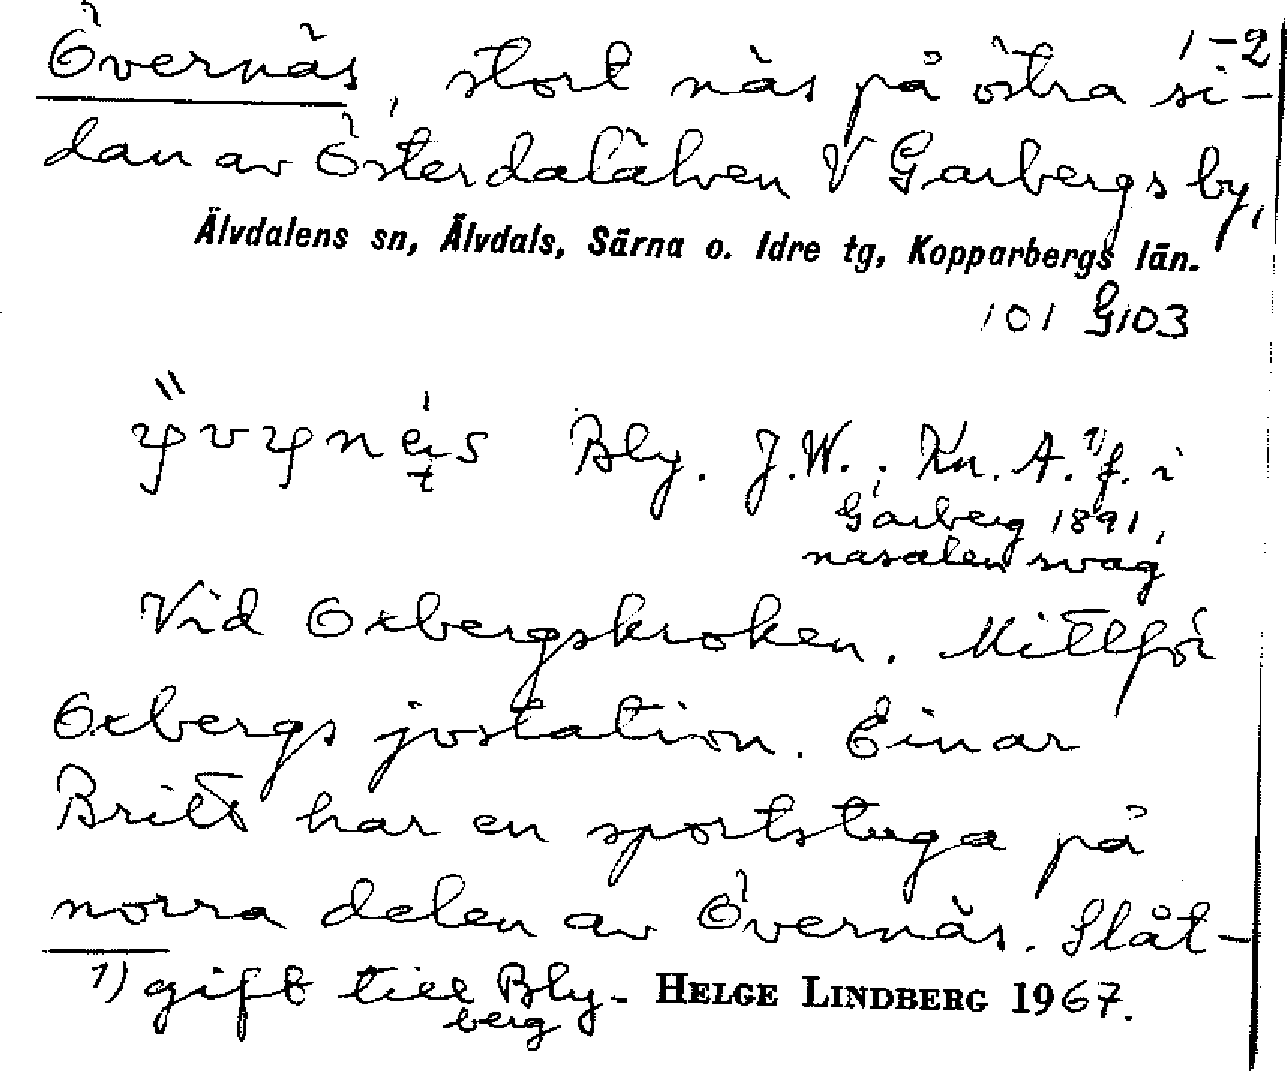 1-2
Övernäs, stort näs på östra si-
dan av Österdalälven V Garbergs by,
Älvdalens sn, Älvdals, Särna o. Idre tg, Kopparbergs län.
101 G103
Bly. J.W.; Kn. A. 1) f. i
Garberg 1891,
nasalen svag
Vid Oxbergskroken. Mittför
Oxbergs jvstation. Einar
Britt har en sportstuga på
norra delen av Övernäs. Slåt-
1) gift till Bly-
berg
HELGE LINDBERG 1967.